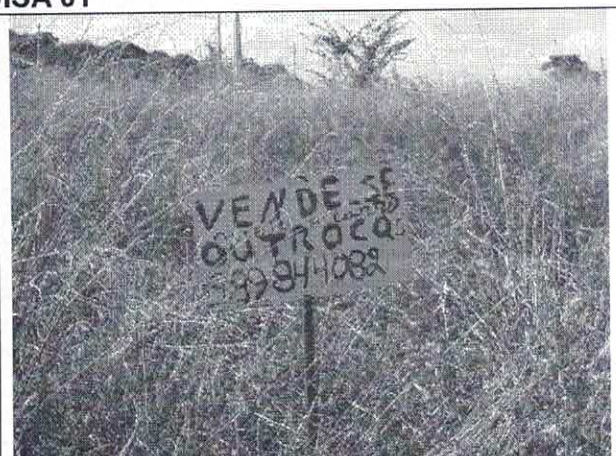 VENDE-SE
OU TROCA
99844082